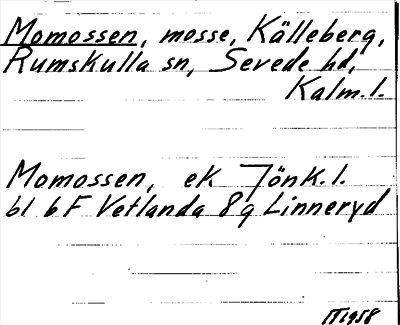 Momossen, mosse, Källeberg,
Rumskulla sn, Sevede hd,
Kalm.l.
Momossen, ek Jönk.l.
bl 6F Vetlanda 8g Linneryd
1958